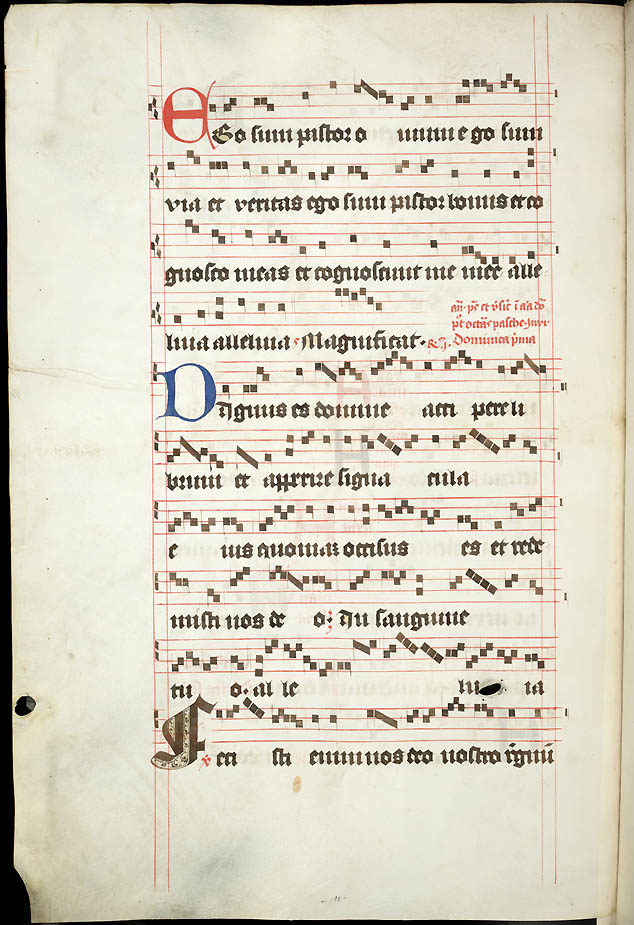 Ego sum pastor o vium ego sum
via et veritas ego sum pastor bonus et co
gnosco meas et cognoscunt me mee alle
luia alleluia Magnificat.
Dominica p̄ma
Dignus es domine acci pere li
brum et apperire signa cula
e ius quoniam occisus es et rede
misti nos de o: In sanguine
tu o. al le lu ia
F eci sti enim nos deo nostro regnū